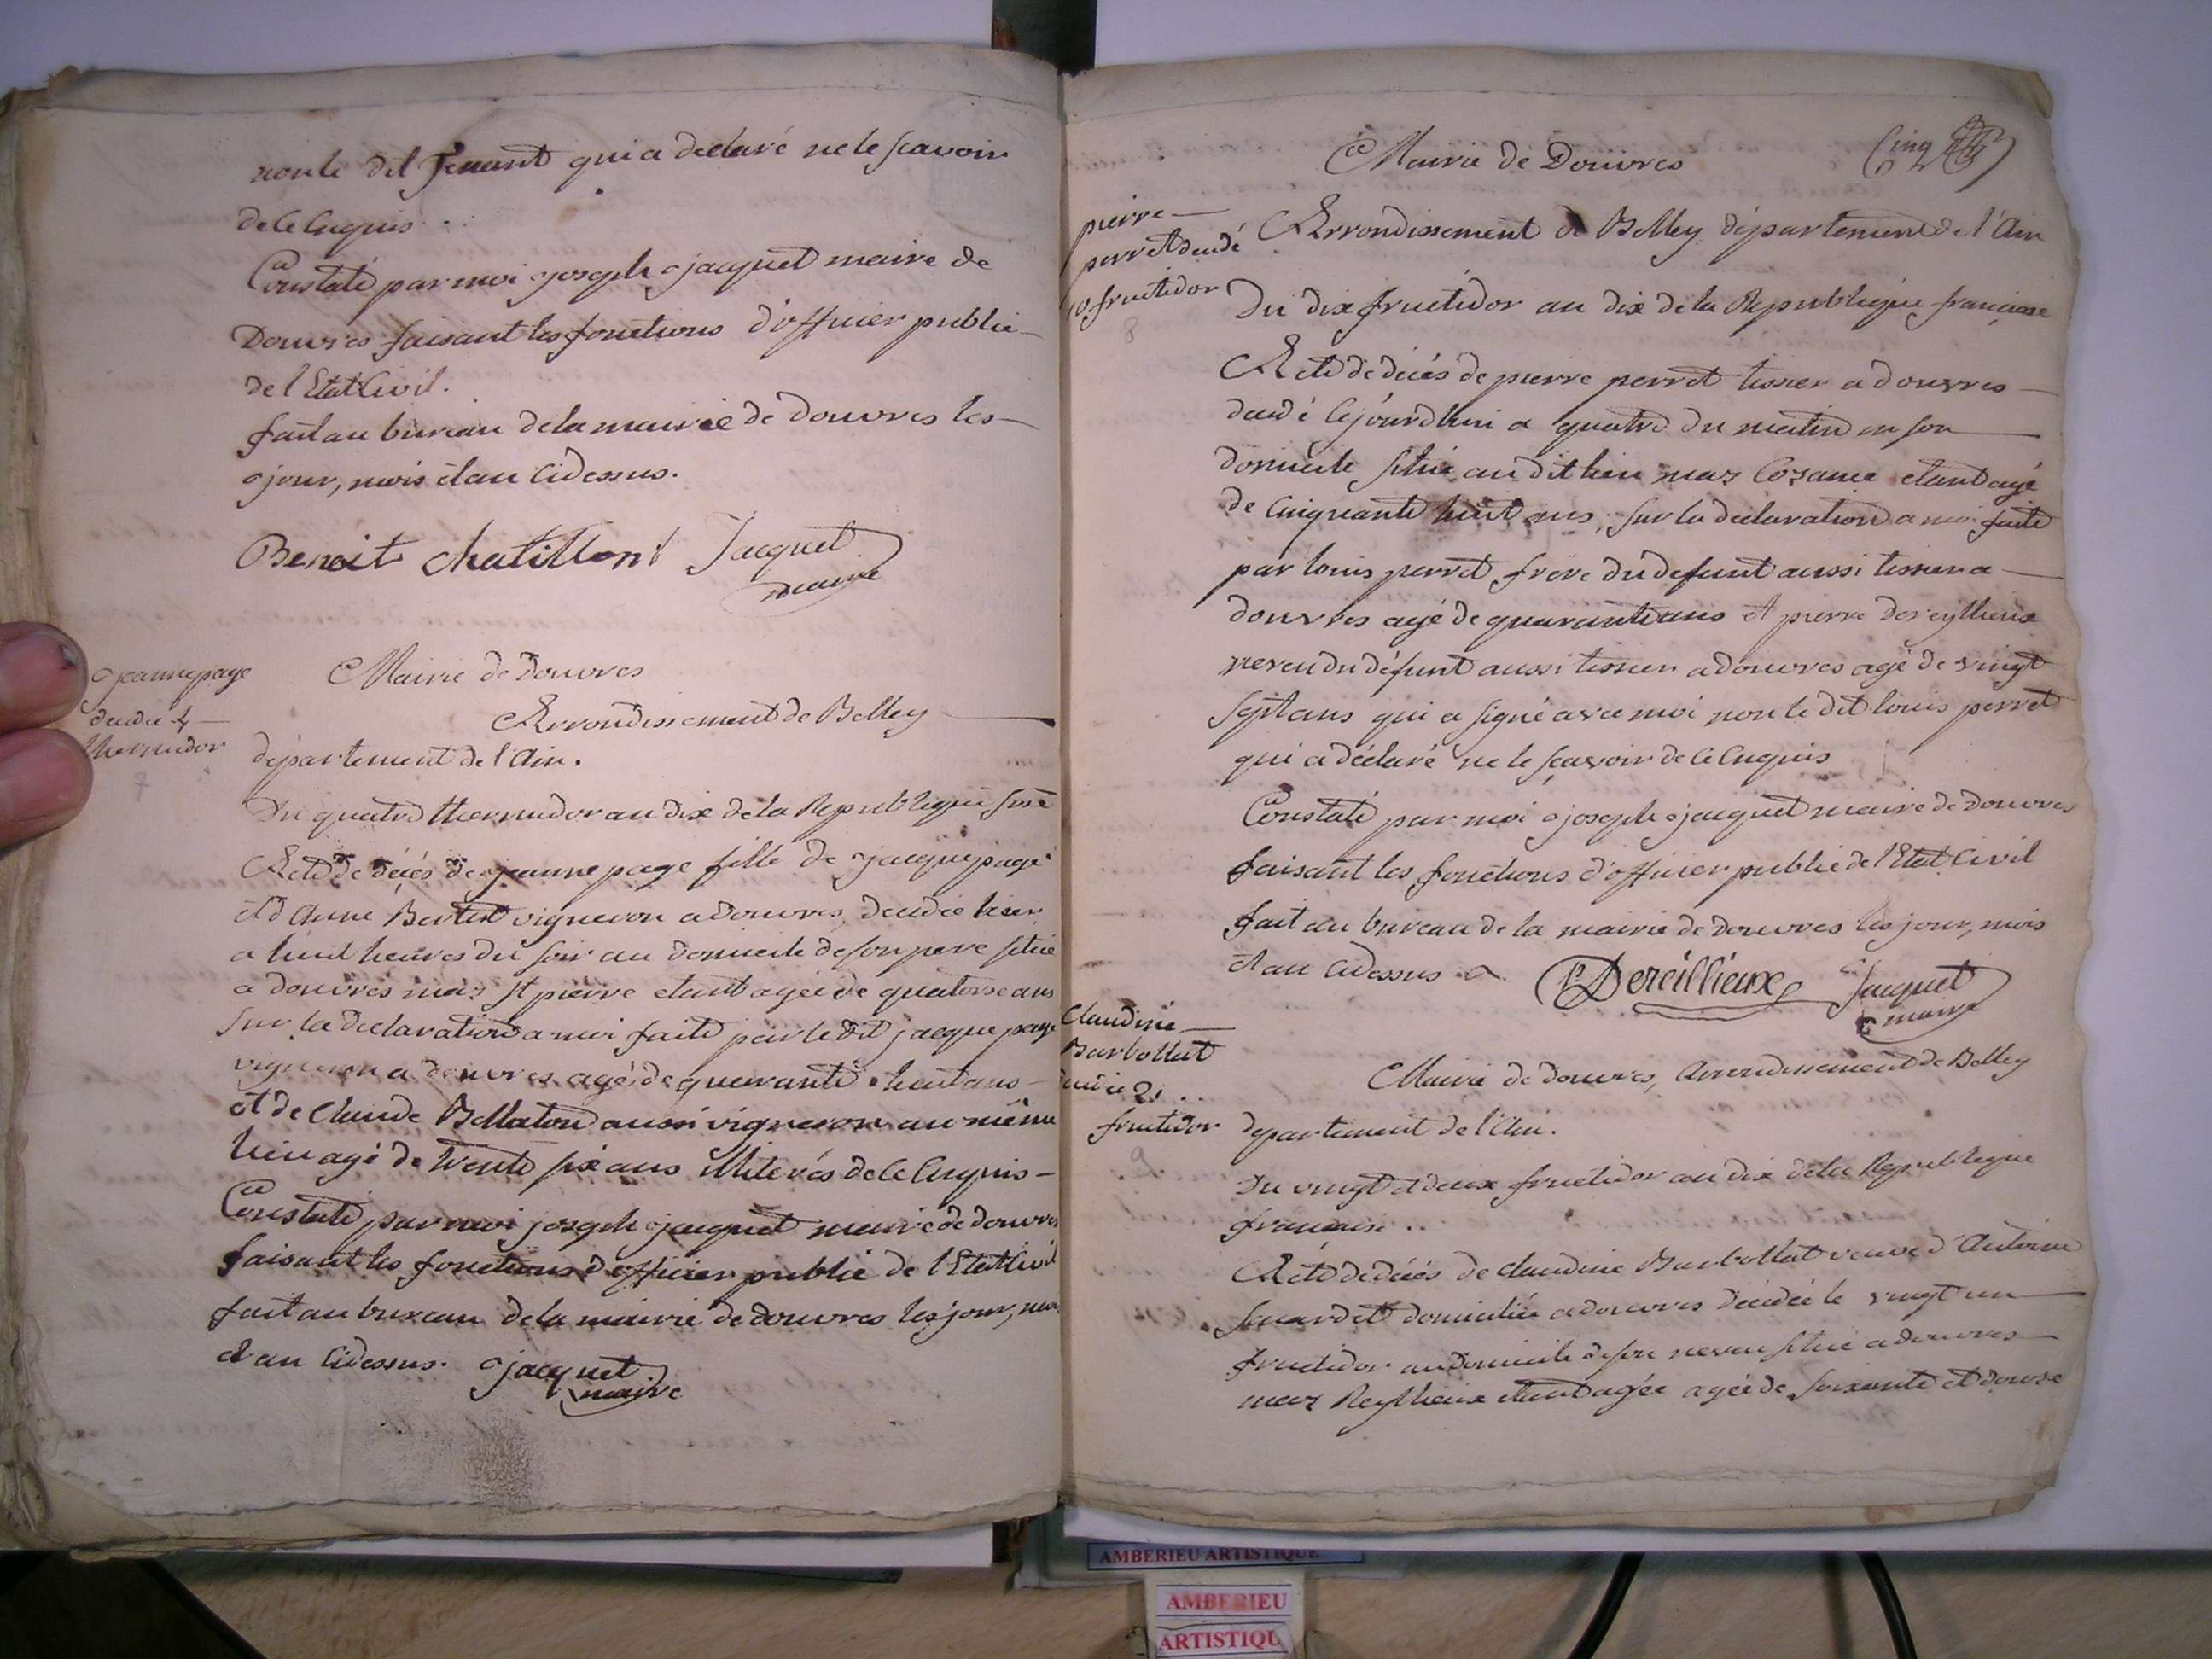 non le dit Jenant qui a declaré ne le scavoir
de ce enquis
Constaté par moi joseph jacquet maire de
Douvres faisant les fonctions d'officier public
de l'Etat Civil.
fait au bureau de la mairie de douvres les
jour, mois et an cidessus.
Benoit chatillont Jacquet
maire
jeanne page
decedée 4
thermidor
7
Mairie de Douvres
Arrondissement de Belley
département de l'Ain.
Du quatre thermidor an dix de la Republique
Acte de décés de jeanne page fille de jacque page
et d'Anne Bertet vigneron a douvres, decedée hier
a huit heures du soir au domicile de son pere situé
a douvres mas St pierre etant agée de quatorse ans
sur la declaration a moi faite par le dit jacque page
vigneron a douvres agé de quarante huit ans
et de Claude Bellaton aussi vigneron au même
lieu agé de trente six ans illiterés de ce enquis
Constaté par moi joseph jacquet maire de douvres
faisant les fonctions d'officier public de l'Etat Civil
fait au bureau de la mairie de douvres les jour, mois
et an cidessus. jacquet
maire
Cinq
Mairie de Douvres
pierre
perret decedé
10 fructidor
8
Arrondissement de Belley département de l'Ain
Du dix fructidor an dix de la Republique française
Acte de décés de pierre perret tissier a douvres
decedé cejourdhui a quatre du matin en son
domicile situé au dit lieu mas Cozance etant agé
de cinquante huit ans, sur la declaration a moi faite
par louis perret frere du defunt aussi tissier a
douvres agé de quarante ans et pierre dereyllieux
neveu du défunt aussi tissier a douvres agé de vingt
sept ans qui a signé avec moi non le dit louis perret
qui a déclaré ne le sçavoir de ce enquis
Constaté par moi joseph jacquet maire de douvres
faisant les fonctions d'officier public de l'Etat Civil
fait au bureau de la mairie de douvres les jour, mois
et an cidessus P Dereillieux Jacquet
maire
Claudine
Barbollat
decedée 21
fructidor
Mairie de douvres, arrondissement de Belley
departement de l'Ain.
Du vingt et deux fructidor an dix de la Republique
francaise
Acte de décés de claudine Barbollat veuve d'Antoine
domiciliée a douvres décédée le vingt un
fructidor au domicile de son neveu situé a douvres
mas Reyllieux etant agée agée de soixante et douse
AMBERIEU ARTISTIQUE
AMBERIEU
ARTISTIQU